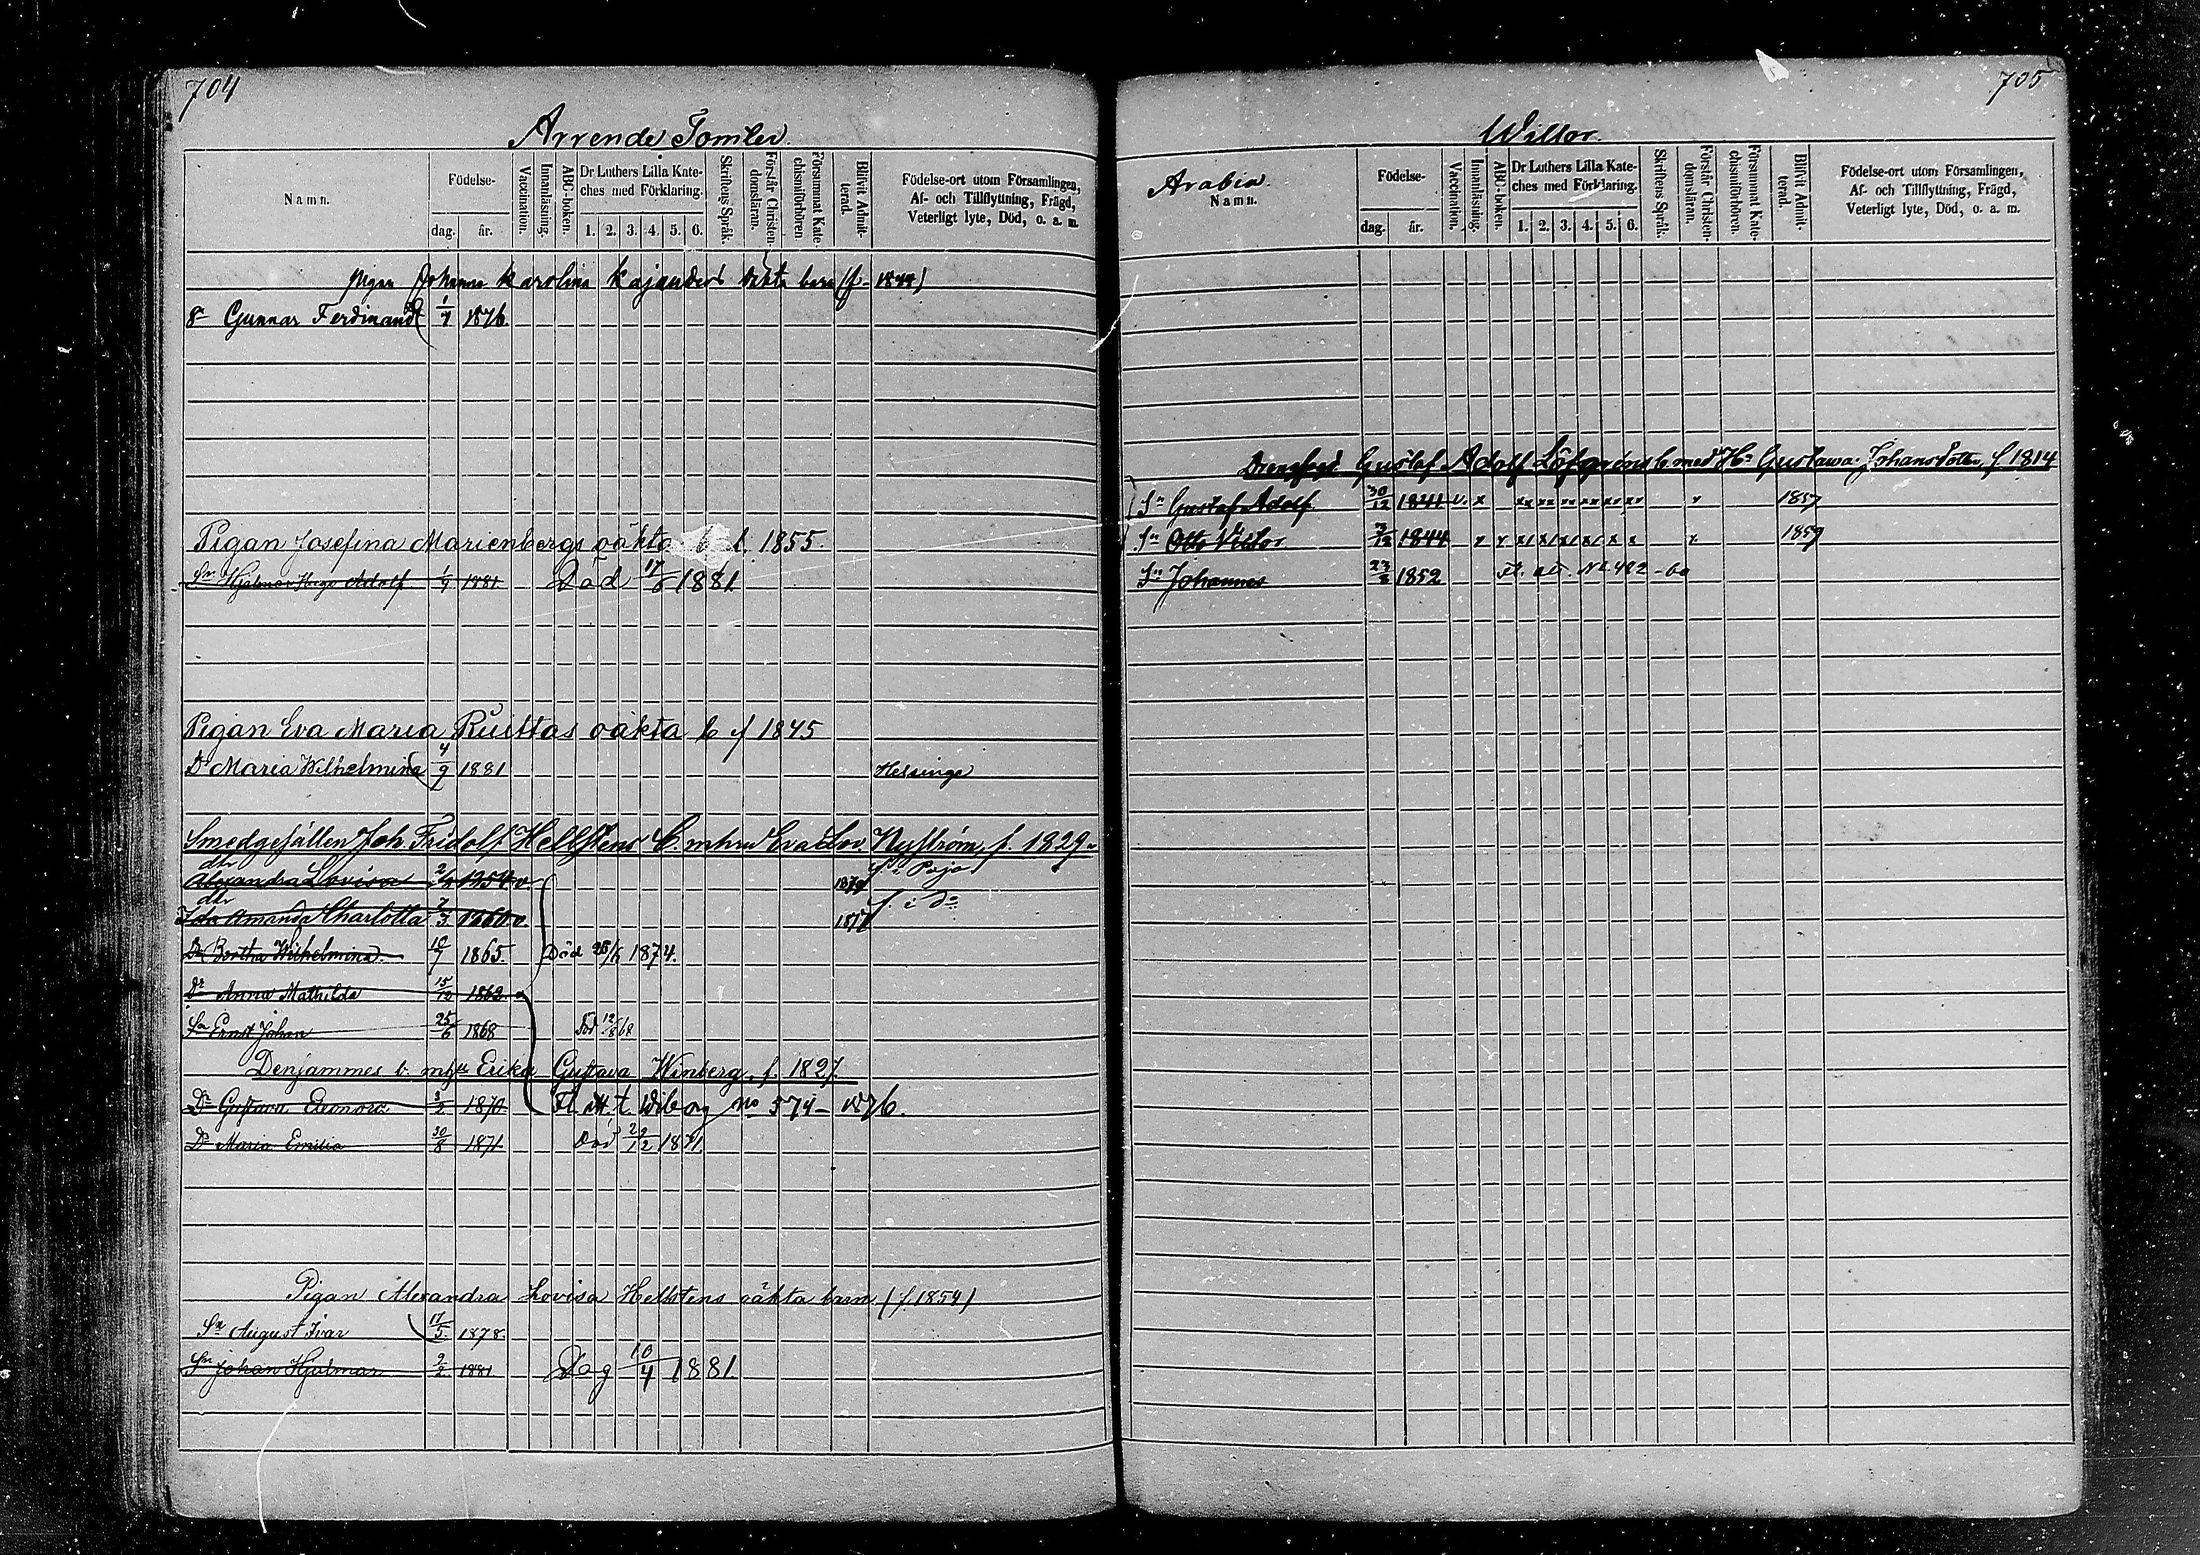 704
Arrende Tomter.
Namn.
Födelse-
dag.
år.
Vaccination.
Innanläsning.
ABC-boken.
Dr Luthers Lilla Kate-
ches med Förklaring.
1. 2. 3. 4. 5. 6.
Skriftens Språk.
Förstår Christen-
domsläran.
Försummat Kate-
chismiförhören.
Blifvit Admit-
terad.
Födelse-ort utom Församlingen,
Af- och Tillflyttning, Frägd,
Veterligt lyte, Död, o. a. m.
pigan Johanna Karolina Kajanders barn (f. 1844)
Sn Gunnar Ferdinand 1/7 1876.
Pigan Josefina Marienbergs oäkta b. f. 1855.
Sn Hjalmar Hugo Adolf 1881. Död 17/6 1881.
Pigan Eva Maria Ruuttas oäkta b f 1845
Dr Maria Wilhelmina 4/9 1881 Helsinge
Smedgesällen Joh. Fridolf Hellstens b. m hu Eva Lov. Nyström f. 1829.
dtr
Alexandra Lovisa 1854 v f. i Pojo
dtr
Ida Amanda Charlotta 7/3 1860. v. f. i do
Dr Bertha Wilhelmina. 10/7 1865. Död 1874.
Dr Anna Mathilda 15/12 1862. v
Sn Ernst Johan 25/6 1868 Död 12/8 68
Densammes b. m hu Erika Gustava Winberg, f. 1827.
Dr Gustava Eleonora 3/2 1870 Fl att t Wiborg No 574 – 1876.
Dr Maria Emilia 30/8 1871 Död 29/12 1871.
Pigan Alexandra Lovisa Hellstens oäkta barn (f. 1854)
Sn August Ivar 17/5 1878.
Sn Johan Hjalmar 9/2 1881. Dog 10/4 1881.
705
Willor.
Arabia.
Namn.
Födelse-
dag.
år.
Vaccination.
Innanläsning.
ABC-boken.
Dr Luthers Lilla Kate-
ches med Förklaring.
1. 2. 3. 4. 5. 6.
Skriftens Språk.
Förstår Christen-
domsläran.
Försummat Kate-
chismiförhören.
Blifvit Admit-
terad.
Födelse-ort utom Församlingen,
Af- och Tillflyttning, Frägd,
Veterligt lyte, Död, o. a. m.
Gustaf Adolf Löfgrens b med Hu Gustawa Johansdotter f 1814
Sn Gustaf Adolf 30/12 1841 v. x xx xx xx xx xx xx x 1857
Sn Otto Viktor 1844 x x x x x x x x x 1859
Sn Johannes 23/2 1852 Fl. att. No 482 – 60